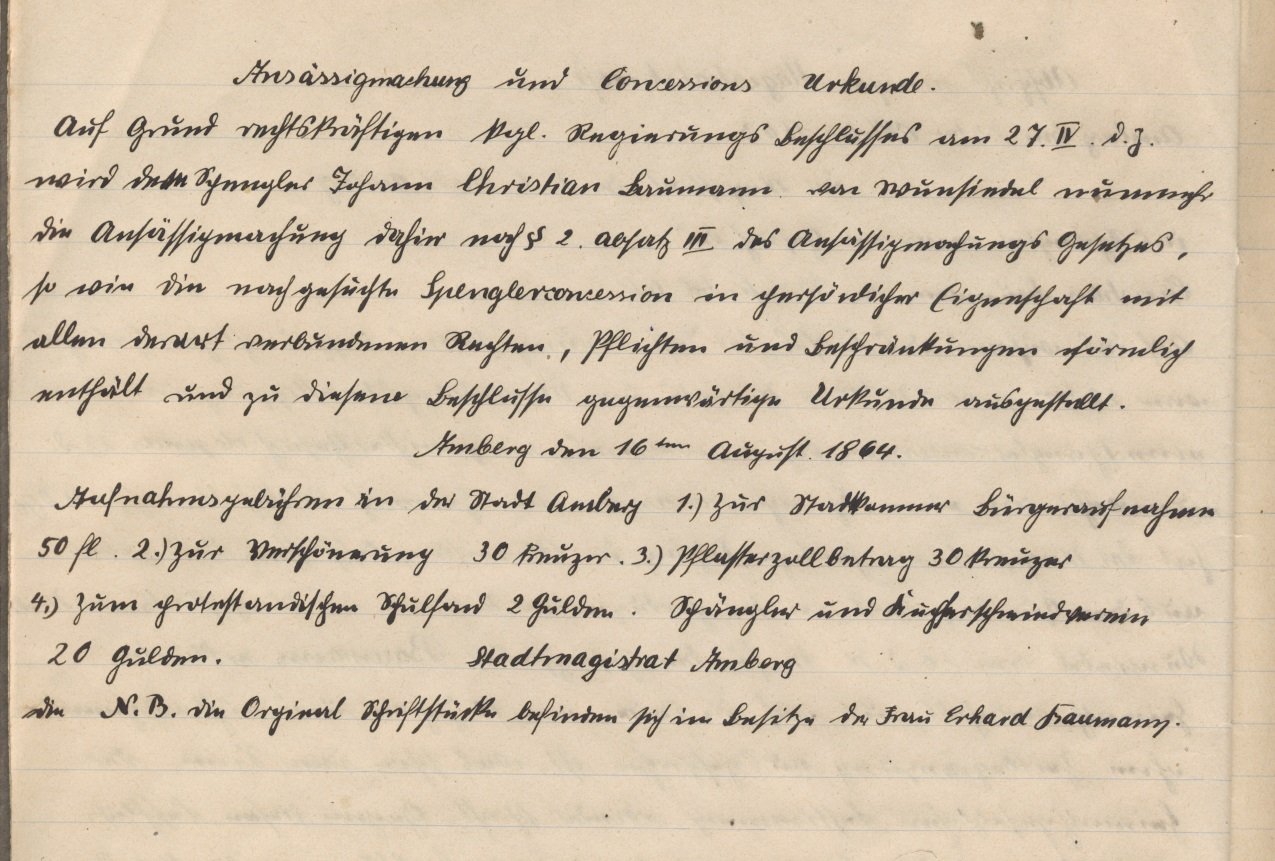 Ansässigmachung und Concessions Urkunde.
Auf Grund rechtskräftigen kgl. Regierungs Beschlusses am 27. IV. d. J.
wird dem Spengler Johann Christian Baumann von Wunsiedel nunmehr
die Ansässigmachung dahier nach § 2. absatz III des Ansässigmachungs Gesetzes,
so wie die nachgesuchte Spenglerconcession in persönlicher Eigenschaft mit
allen derart verbundenen Rechten, Pflichten und Beschränkungen förmlich
enthält und zu diesem Beschlusse gegenwärtige Urkunde ausgestellt.
Amberg den 16ten August. 1864.
Aufnahmsgebühren in der Stadt Amberg 1.) Zur Stadtkammer Bürgeraufnahme
50 fl. 2.) Zur Verschönerung 30 Kreuzer. 3.) Pflasterzollbetrag 30 Kreuzer
4.) Zum protestandischen Schulfond 2 Gulden. Spängler und Kupferschmiedverein
20 Gulden. Stadtmagistrat Amberg
die N. B. die Orginal Schriftstücke befinden sich im Besitze der Frau Erhard Baumann.